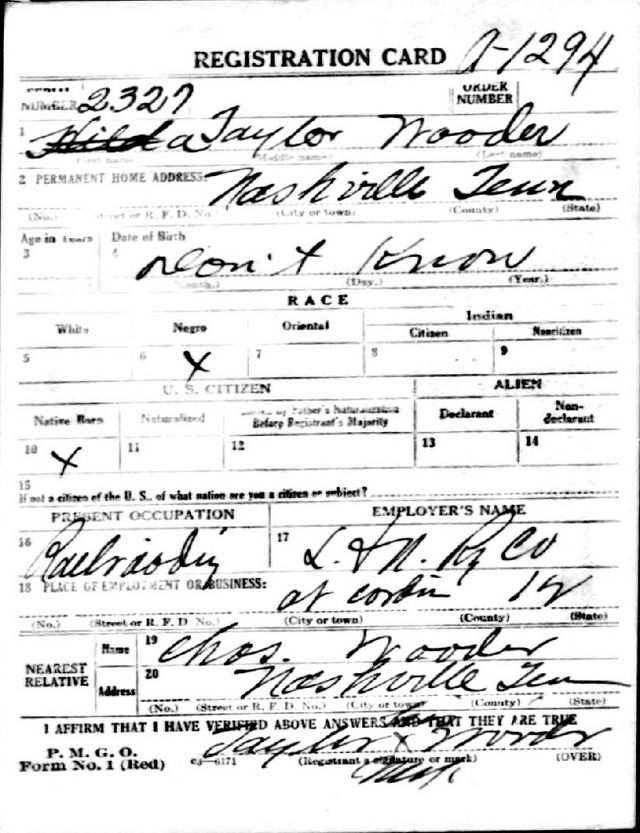 REGISTRATION CARD A-1294
SERIAL NUMBER 2327 ORDER NUMBER
1 Taylor Wooder
First name (Middle name) (Last name)
2 PERMANENT HOME ADDRESS: Nashville Tenn
(No.) (Street or R. F. D. No.) (City or town) (County) (State)
Age in Years Date of Birth
3 4 Don't Know
(Month.) (Day.) (Year.)
RACE
White Negro Oriental Indian
Citizen Noncitizen
5 6 X 7 8 9
U. S. CITIZEN ALIEN
Native Born Naturalized Citizen by Father's Naturalization Before Registrant's Majority Declarant Non-declarant
10 X 11 12 13 14
15
If not a citizen of the U. S., of what nation are you a citizen or subject?
PRESENT OCCUPATION EMPLOYER'S NAME
16 Railroading 17 L. & N. Ry Co
18 PLACE OF EMPLOYMENT OR BUSINESS:
at Corbin Ky
(No.) (Street or R. F. D. No.) (City or town) (County) (State)
NEAREST RELATIVE Name 19 Chas. Wooder
Address 20 Nashville Tenn
(No.) (Street or R. F. D. No.) (City or town) (County) (State)
I AFFIRM THAT I HAVE VERIFIED ABOVE ANSWERS AND THAT THEY ARE TRUE
P. M. G. O.
Form No. 1 (Red) c3—6171 Taylor X Wooder
(Registrant's signature or mark) (OVER)